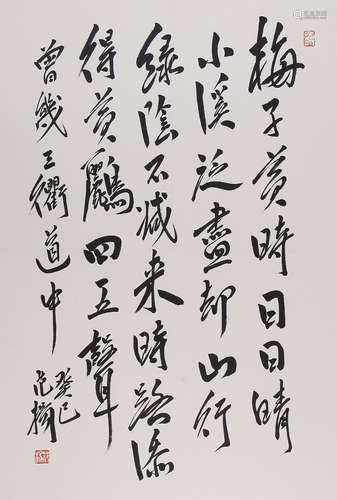 梅子黄時日日晴
小溪泛盡却山行
緑陰不減来時路添
得黄鸝四五聲
曾幾三衢道中
癸巳
范楊